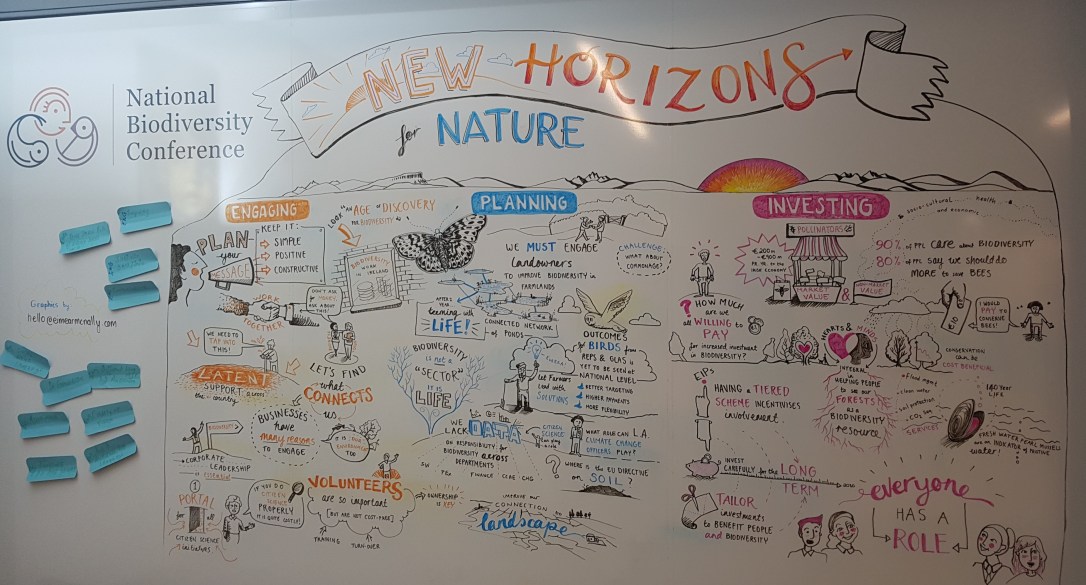 NEW HORIZONS
for NATURE
National
Biodiversity
Conference
Graphics by
hello@eimearmcnally.com
ENGAGING
PLAN
your
MESSAGE
KEEP IT:
SIMPLE
POSITIVE
CONSTRUCTIVE
LOOK "AN AGE OF DISCOVERY
FOR BIODIVERSITY"
BIODIVERSITY
WORK
IN IRELAND
WORK
TOGETHER
DON'T JUST
ABOUT
THIS!
WE NEED TO
TAP INTO
THIS!
LATENT
SUPPORT across
the country
LET'S FIND
what
CONNECTS
us
BUSINESSES
have
many reasons
TO ENGAGE
IT IS OUR
ENVIRONMENT
TOO
BIODIVERSITY
CORPORATE
LEADERSHIP
is ESSENTIAL
1
PORTAL
for all
CITIZEN SCIENCE
initiatives
IF YOU DO
CITIZEN
SCIENCE
PROPERLY
IT IS QUITE COSTLY!
VOLUNTEERS
ARE so IMPORTANT
[BUT ARE NOT COST-FREE]
TRAINING
TURN-OVER
PLANNING
WE MUST ENGAGE
landowners
TO IMPROVE BIODIVERSITY in
FARMLANDS
CHALLENGE:
WHAT ABOUT
COMMONAGE?
AFTER 1
YEAR
teeming with
LIFE!
CONNECTED NETWORK
of PONDS
BIODIVERSITY
is not a
"SECTOR"
IT IS
LIFE
OUTCOMES
for BIRDS from
REPS & GLAS is
YET TO BE SEEN at
NATIONAL LEVEL
BETTER TARGETING
HIGHER PAYMENTS
MORE FLEXIBILITY
Let Farmers
Lead with
SOLUTIONS
WE
LACK DATA
ON RESPONSIBILITY for
BIODIVERSITY across
DEPARTMENTS
CITIZEN
SCIENCE
can play
a role
WHAT ROLE CAN L.A.
CLIMATE CHANGE
OFFICERS PLAY?
? WHERE is THE EU DIRECTIVE
on SOIL?
OWNERSHIP
is KEY
IMPROVE our
CONNECTION to
landscape
INVESTING
& socio-cultural
health
and economic
POLLINATORS
TO THE
IRISH ECONOMY
MARKET
VALUE
&
NON-MARKET
VALUE
90% of PPL CARE about BIODIVERSITY
80% of PPL SAY WE SHOULD do
MORE to SAVE BEES
€10
I WOULD
PAY TO
CONSERVE
BEES!
? HOW MUCH
are we
all WILLING to
PAY
for increased investment
in BIODIVERSITY?
HEARTS & MINDS
INTEGRAL
in
HELPING PEOPLE
to see our
FORESTS
as a
BIODIVERSITY
resource
CONSERVATION
can be
COST BENEFICIAL
clean water
soil protection
CO2 sink
SERVICES
140 Year
LIFE
FRESH WATER PEARL MUSSELS
are an INDICATOR of PRISTINE
water!
EIP's
HAVING a TIERED
SCHEME INCENTIVISES
involvement
INVEST
CAREFULLY for the LONG
TERM
TAILOR
investments
to BENEFIT PEOPLE
and BIODIVERSITY
everyone
HAS A
ROLE